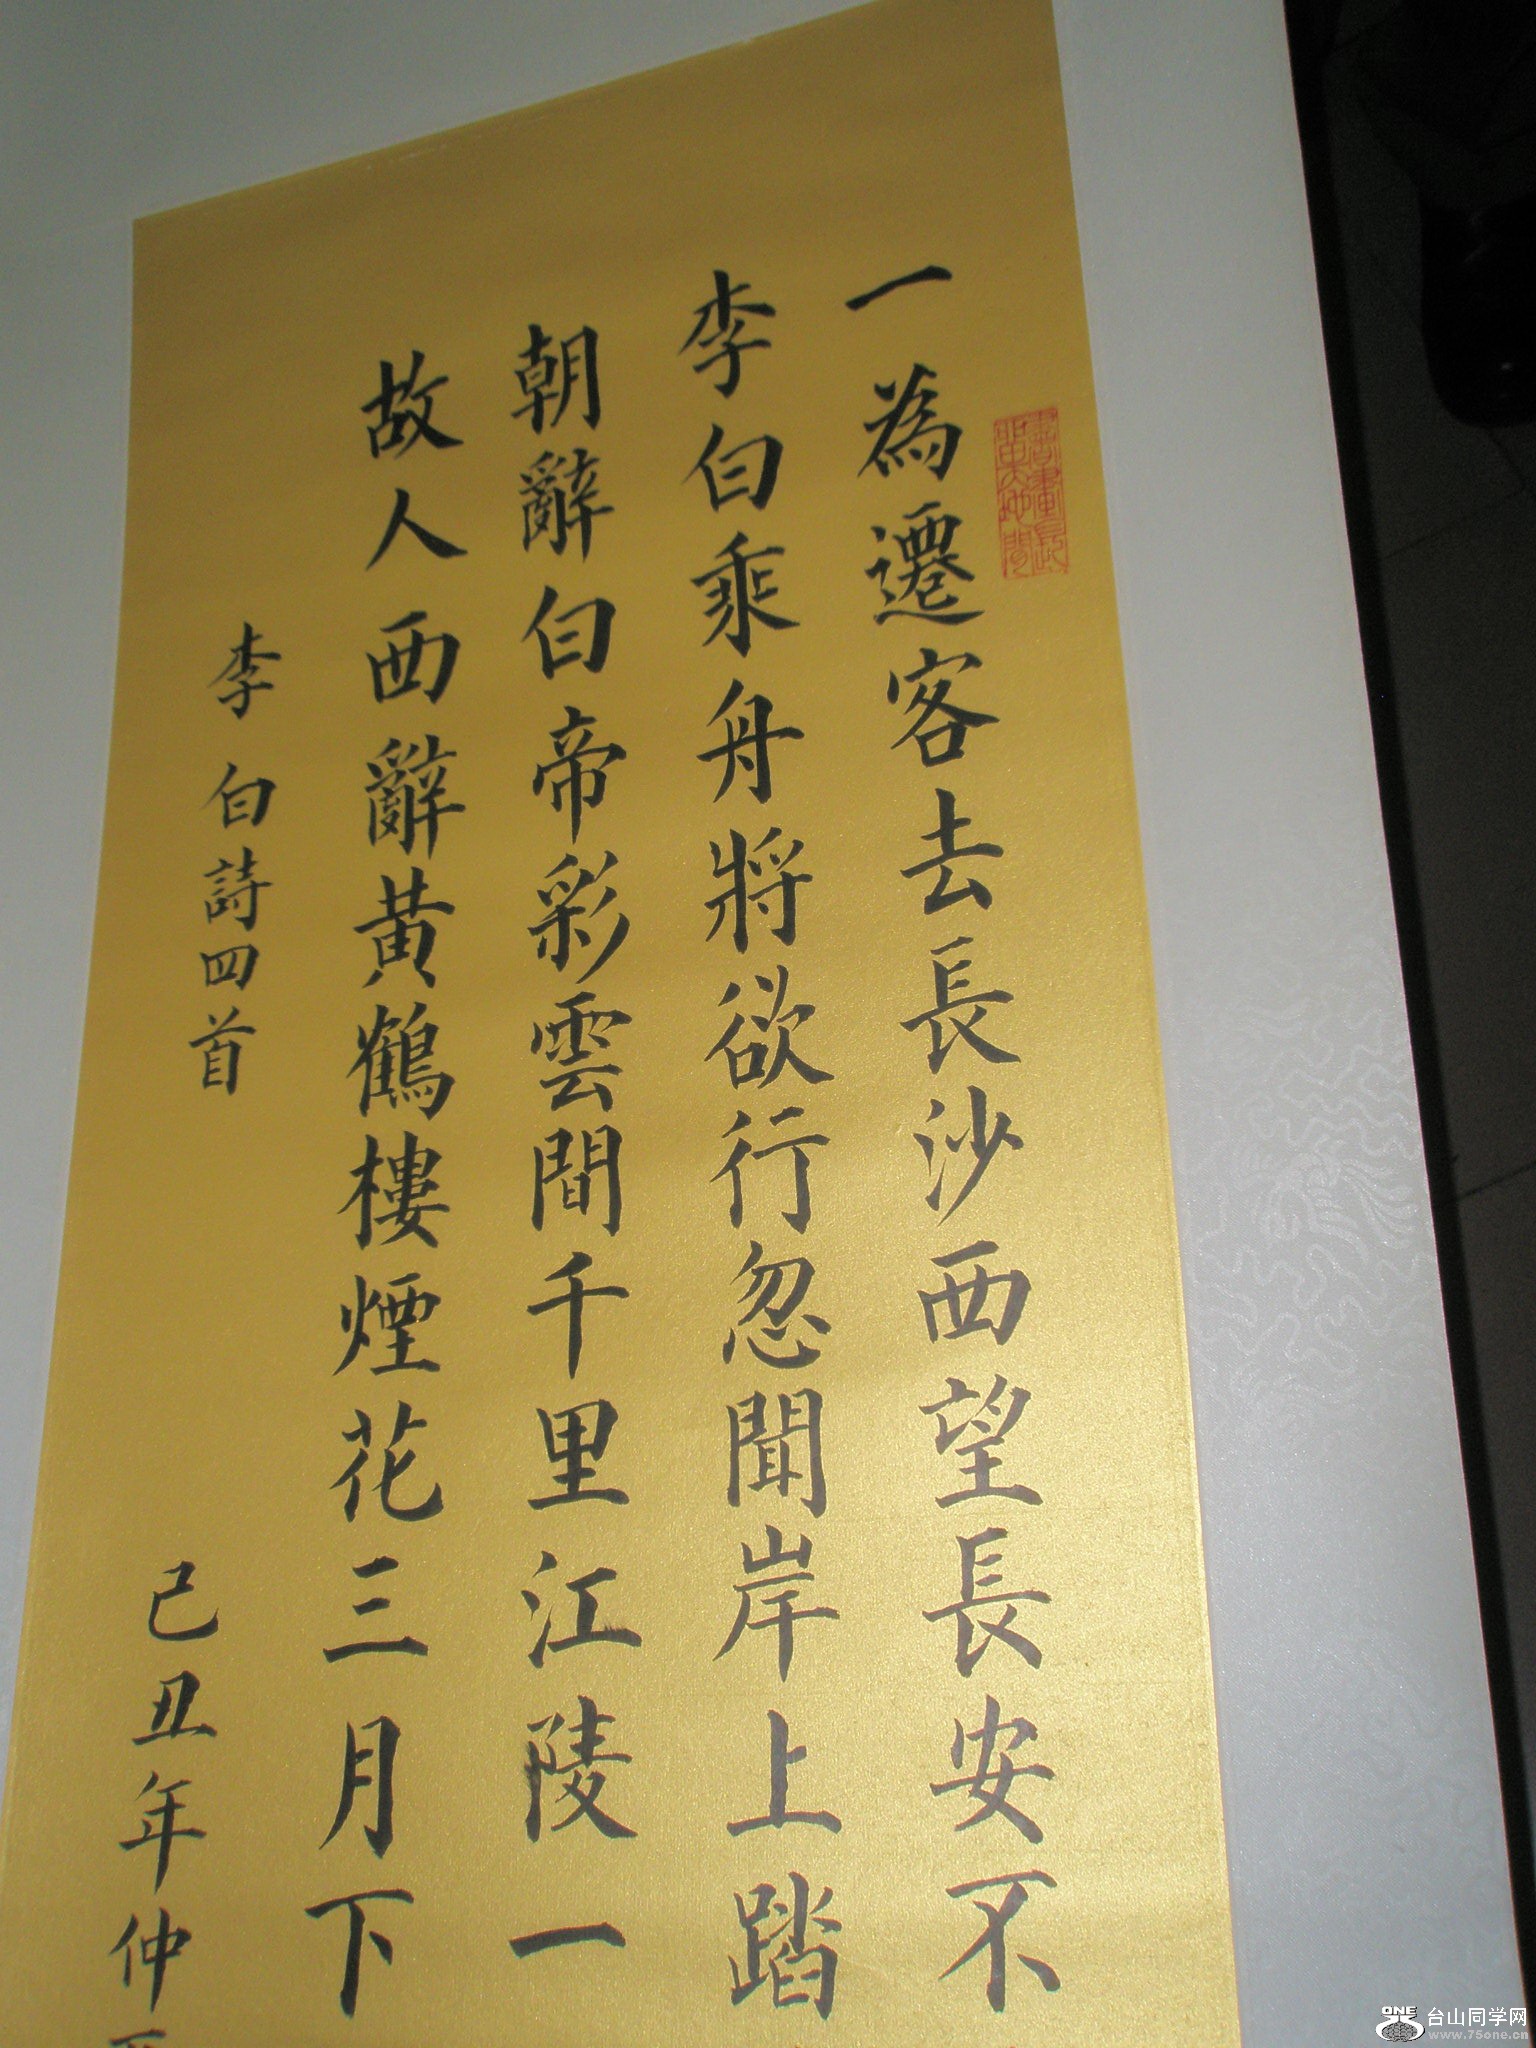 一為遷客去長沙西望長安不
李白乘舟將欲行忽聞岸上踏
朝辭白帝彩雲間千里江陵一
故人西辭黃鶴樓煙花三月下
李白詩四首
己丑年仲
ONE 台山同学网
www.75one.cn